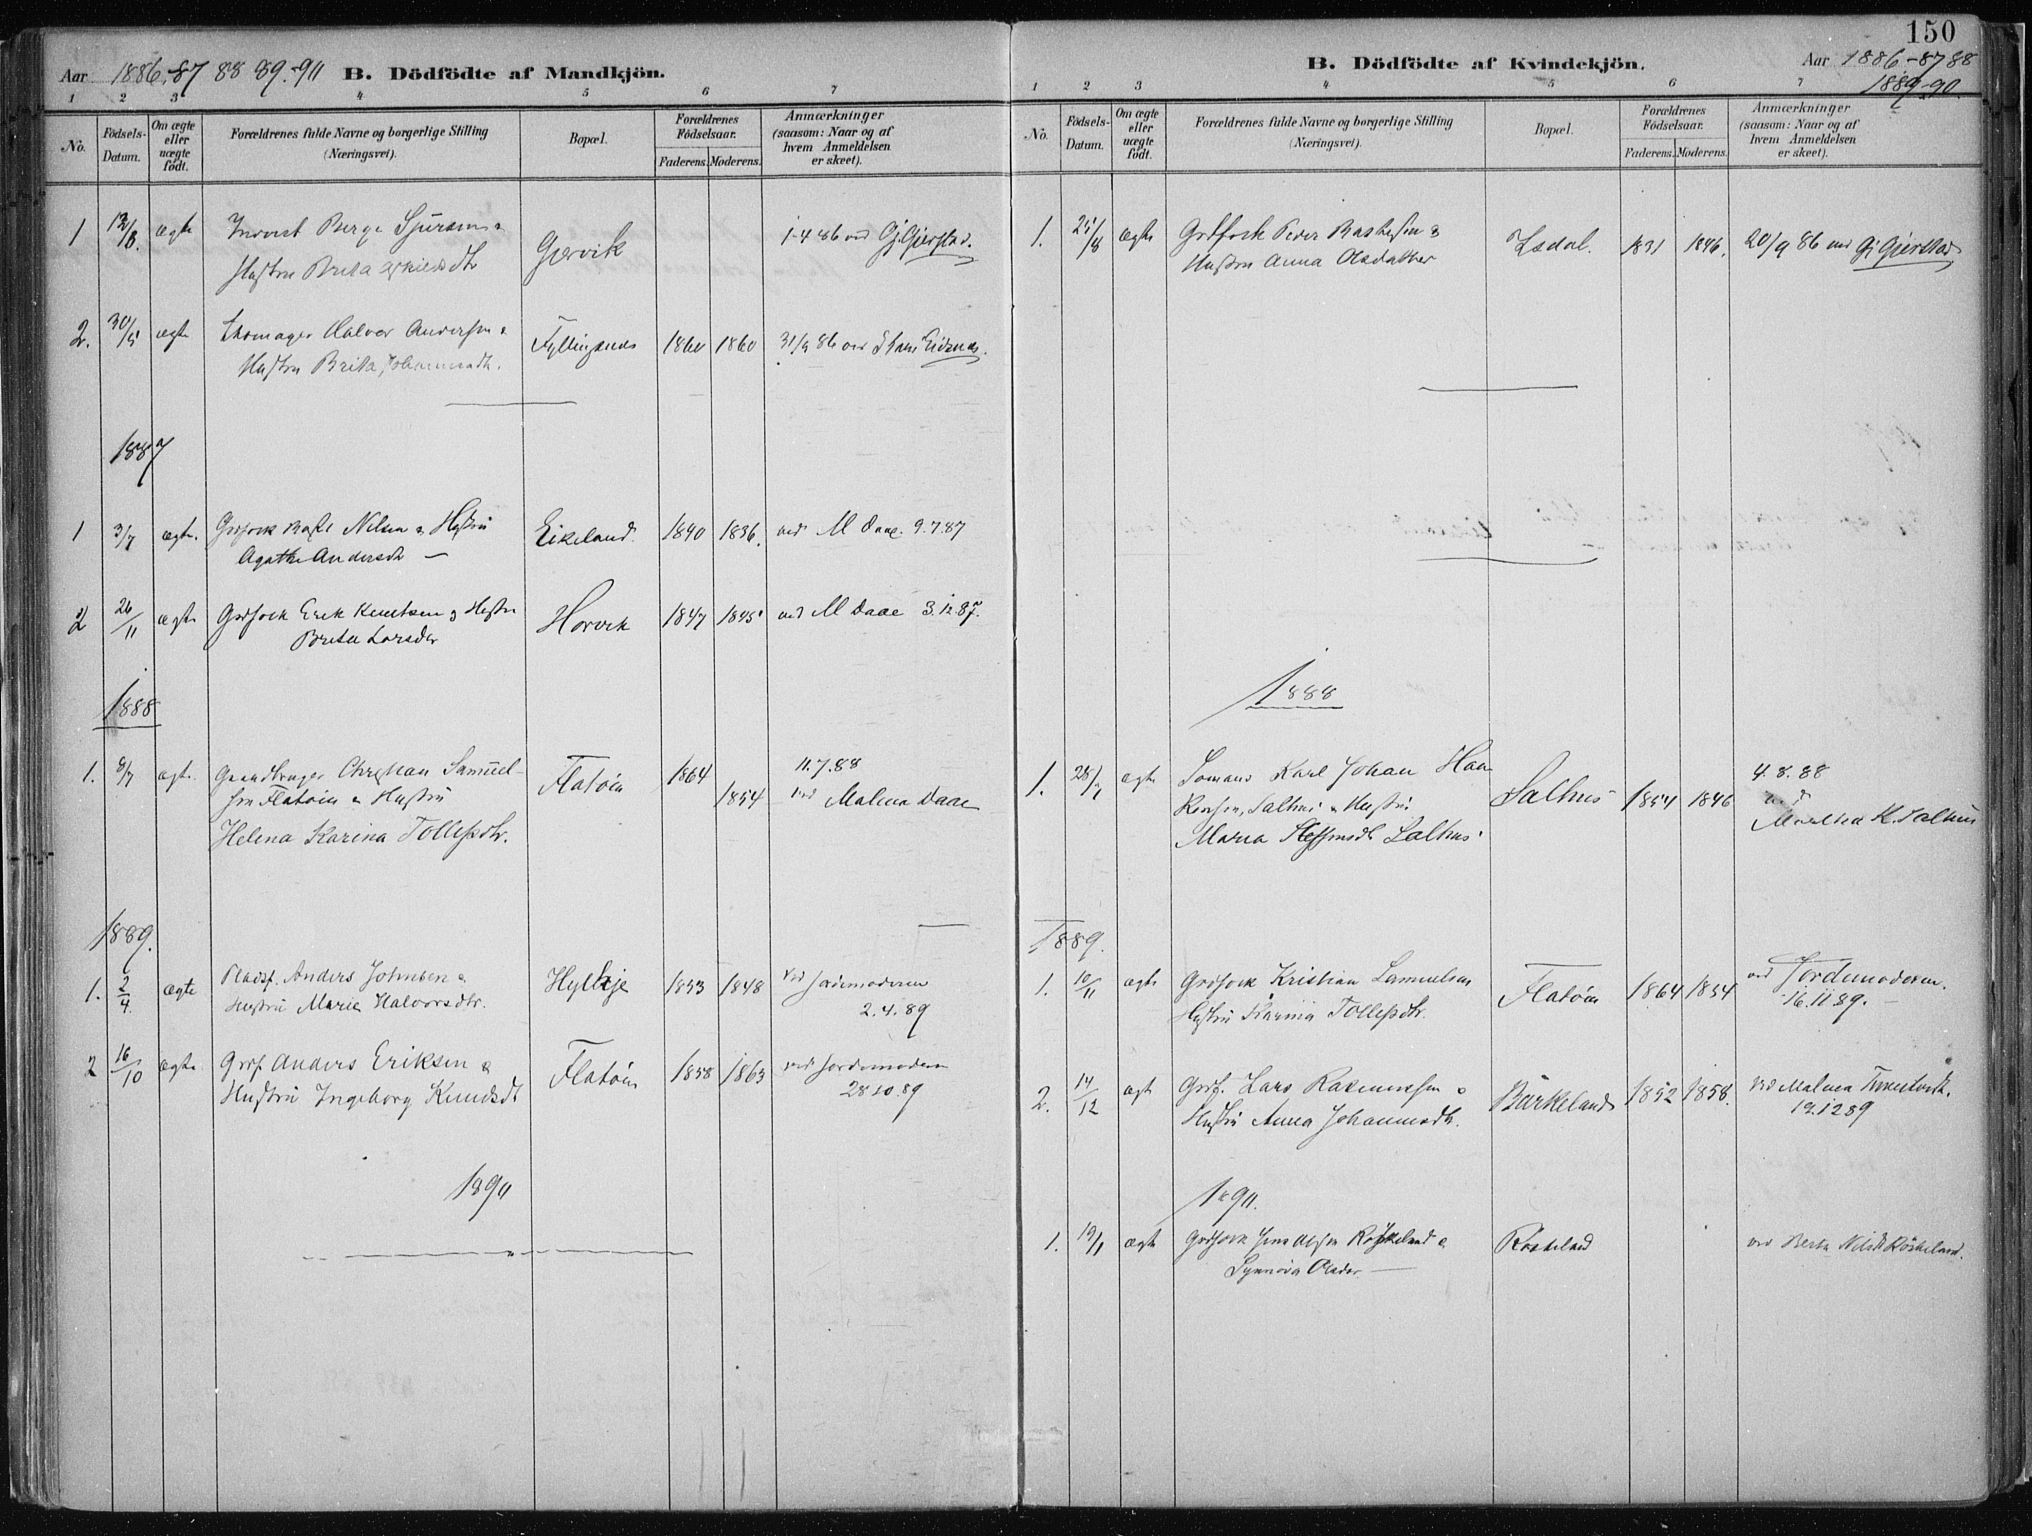 Aar 1886-87 88 89-90 B. Dödfödte af Mandkjön.
1 2 3 4 5 6 7
No.
Födsels-Datum.
Om ægte eller uægte født.
Forældrenes fulde Navne og borgerlige Stilling
(Næringsvei).
Bopæl.
Forældrenes Födselsaar.
Faderens. Moderens.
Anmærkninger
(saasom: Naar og af
hvem Anmeldelsen
er skeet).
1 12/8. ægte Berge Sjursen & Gjervik 1-4 86 ved Gj. Gjerstad.
Hustru Brita
2. 30/5 ægte Skomager Halvor Andersen & Fyllingsnes 1860 1860 31/9 86 ved Eidsnes.
Hustru Brita Johannesdtr.
1887
1 3/7 ægte. Nilsen & Hustru Eikeland 1840 1836. ved M Daae. 9.7.87
Agathe Andersdtr —
2 26/11 ægte Grdfork Erik Knutsen & Hustru Horvik 1847 1845 ved M Daae 3.12.87.
Brita Larsdtr
1888
1. 8/7 ægte Christian Samuel- Flatöen 1864 11.7.88
sen Flatöen & Hustru 1854 ved Malena Daae
Helena Karina Tollefsdtr.
1889.
1. 2/4. ægte Pladsf. Anders Johnsen & Hylkje 1853 1848 ved Jordemoderen
Hustru Maria Halvorsdtr. 2.4.89
2 16/10 ægte Grdf. Anders Eriksen & Flatöen 1858 1863 ved Jordemoderen
Hustru Ingeborg Knudsdt 28.10.89
1890
150
B. Dödfödte af Kvindekjön. Aar 1886.-87 88
1889-90.
1 2 3 4 5 6 7
No.
Födsels-Datum.
Om ægte eller uægte födt.
Forældrenes fulde Navne og borgerlige Stilling
(Næringsvei).
Bopæl.
Forældrenes Födselsaar.
Faderens. Moderens.
Anmærkninger
(saasom: Naar og af
hvem Anmeldelsen
er skeet).
1. 25/8 ægte Grdfork Peder & 1831 1846. 20/9 86 ved Gj. Gjerstad
Hustru Anna Olsdatter
1888
1. 28/7 ægte Karl Johan Haa- Salhus 1854 1846 4.8.88
kensen, Salhus & Hustru ved
Maria Steffensdt Salhus. K. Salhus
1889.
1. 10/11 ægte Grdfork Kristian Samuelsen Flatöen 1864 1854 ved Jordemoderen.
Hustru Karina Tollefsdtr. 16.11.89.
2. 14/12 ægte Grdf. Lars Rasmussen & Bärkeland 1852 1858. ved Malena
Hustru Anna Johannesdtr. 19.12 89
1890.
1. 19/1 ægte Grdfork Jens Olsen Röskeland & Röskeland ved Berta Nilsdt Röskeland.
Synnöva Olsdtr —